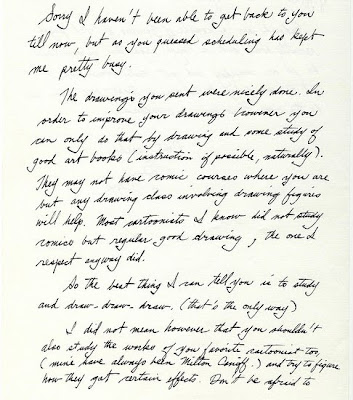 Sorry I haven't been able to get back to you
till now, but as you guessed scheduling has kept
me pretty busy.
The drawings you sent were nicely done. In
order to improve your drawings however you
can only do that by drawing and some study of
good art books (instruction if possible, naturally).
They may not have comic courses where you are
but any drawing class involving drawing figures
will help. Most cartoonists I know did not study
comics but regular good drawing, the one I
respect anyway did.
So the best thing I can tell you is to study
and draw-draw-draw. (that's the only way)
I did not mean however that you shouldn't
also study the works of you favorite cartoonist too,
(mine have always been Milton Caniff.) and try to figure
how they get certain effects. Don't be afraid to